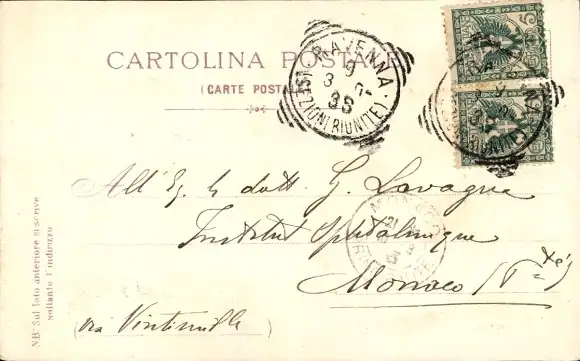 CARTOLINA POSTALE
(CARTE POSTALE)
RAVENNA
9
3
(SEZIONI RIUNITE)
All'Eg. dott. G. Lavagna
Institut Ophtalmique
Monaco (Pté)
(via Vintimille)
N.B. Sul lato anteriore si scrive
soltanto l'indirizzo